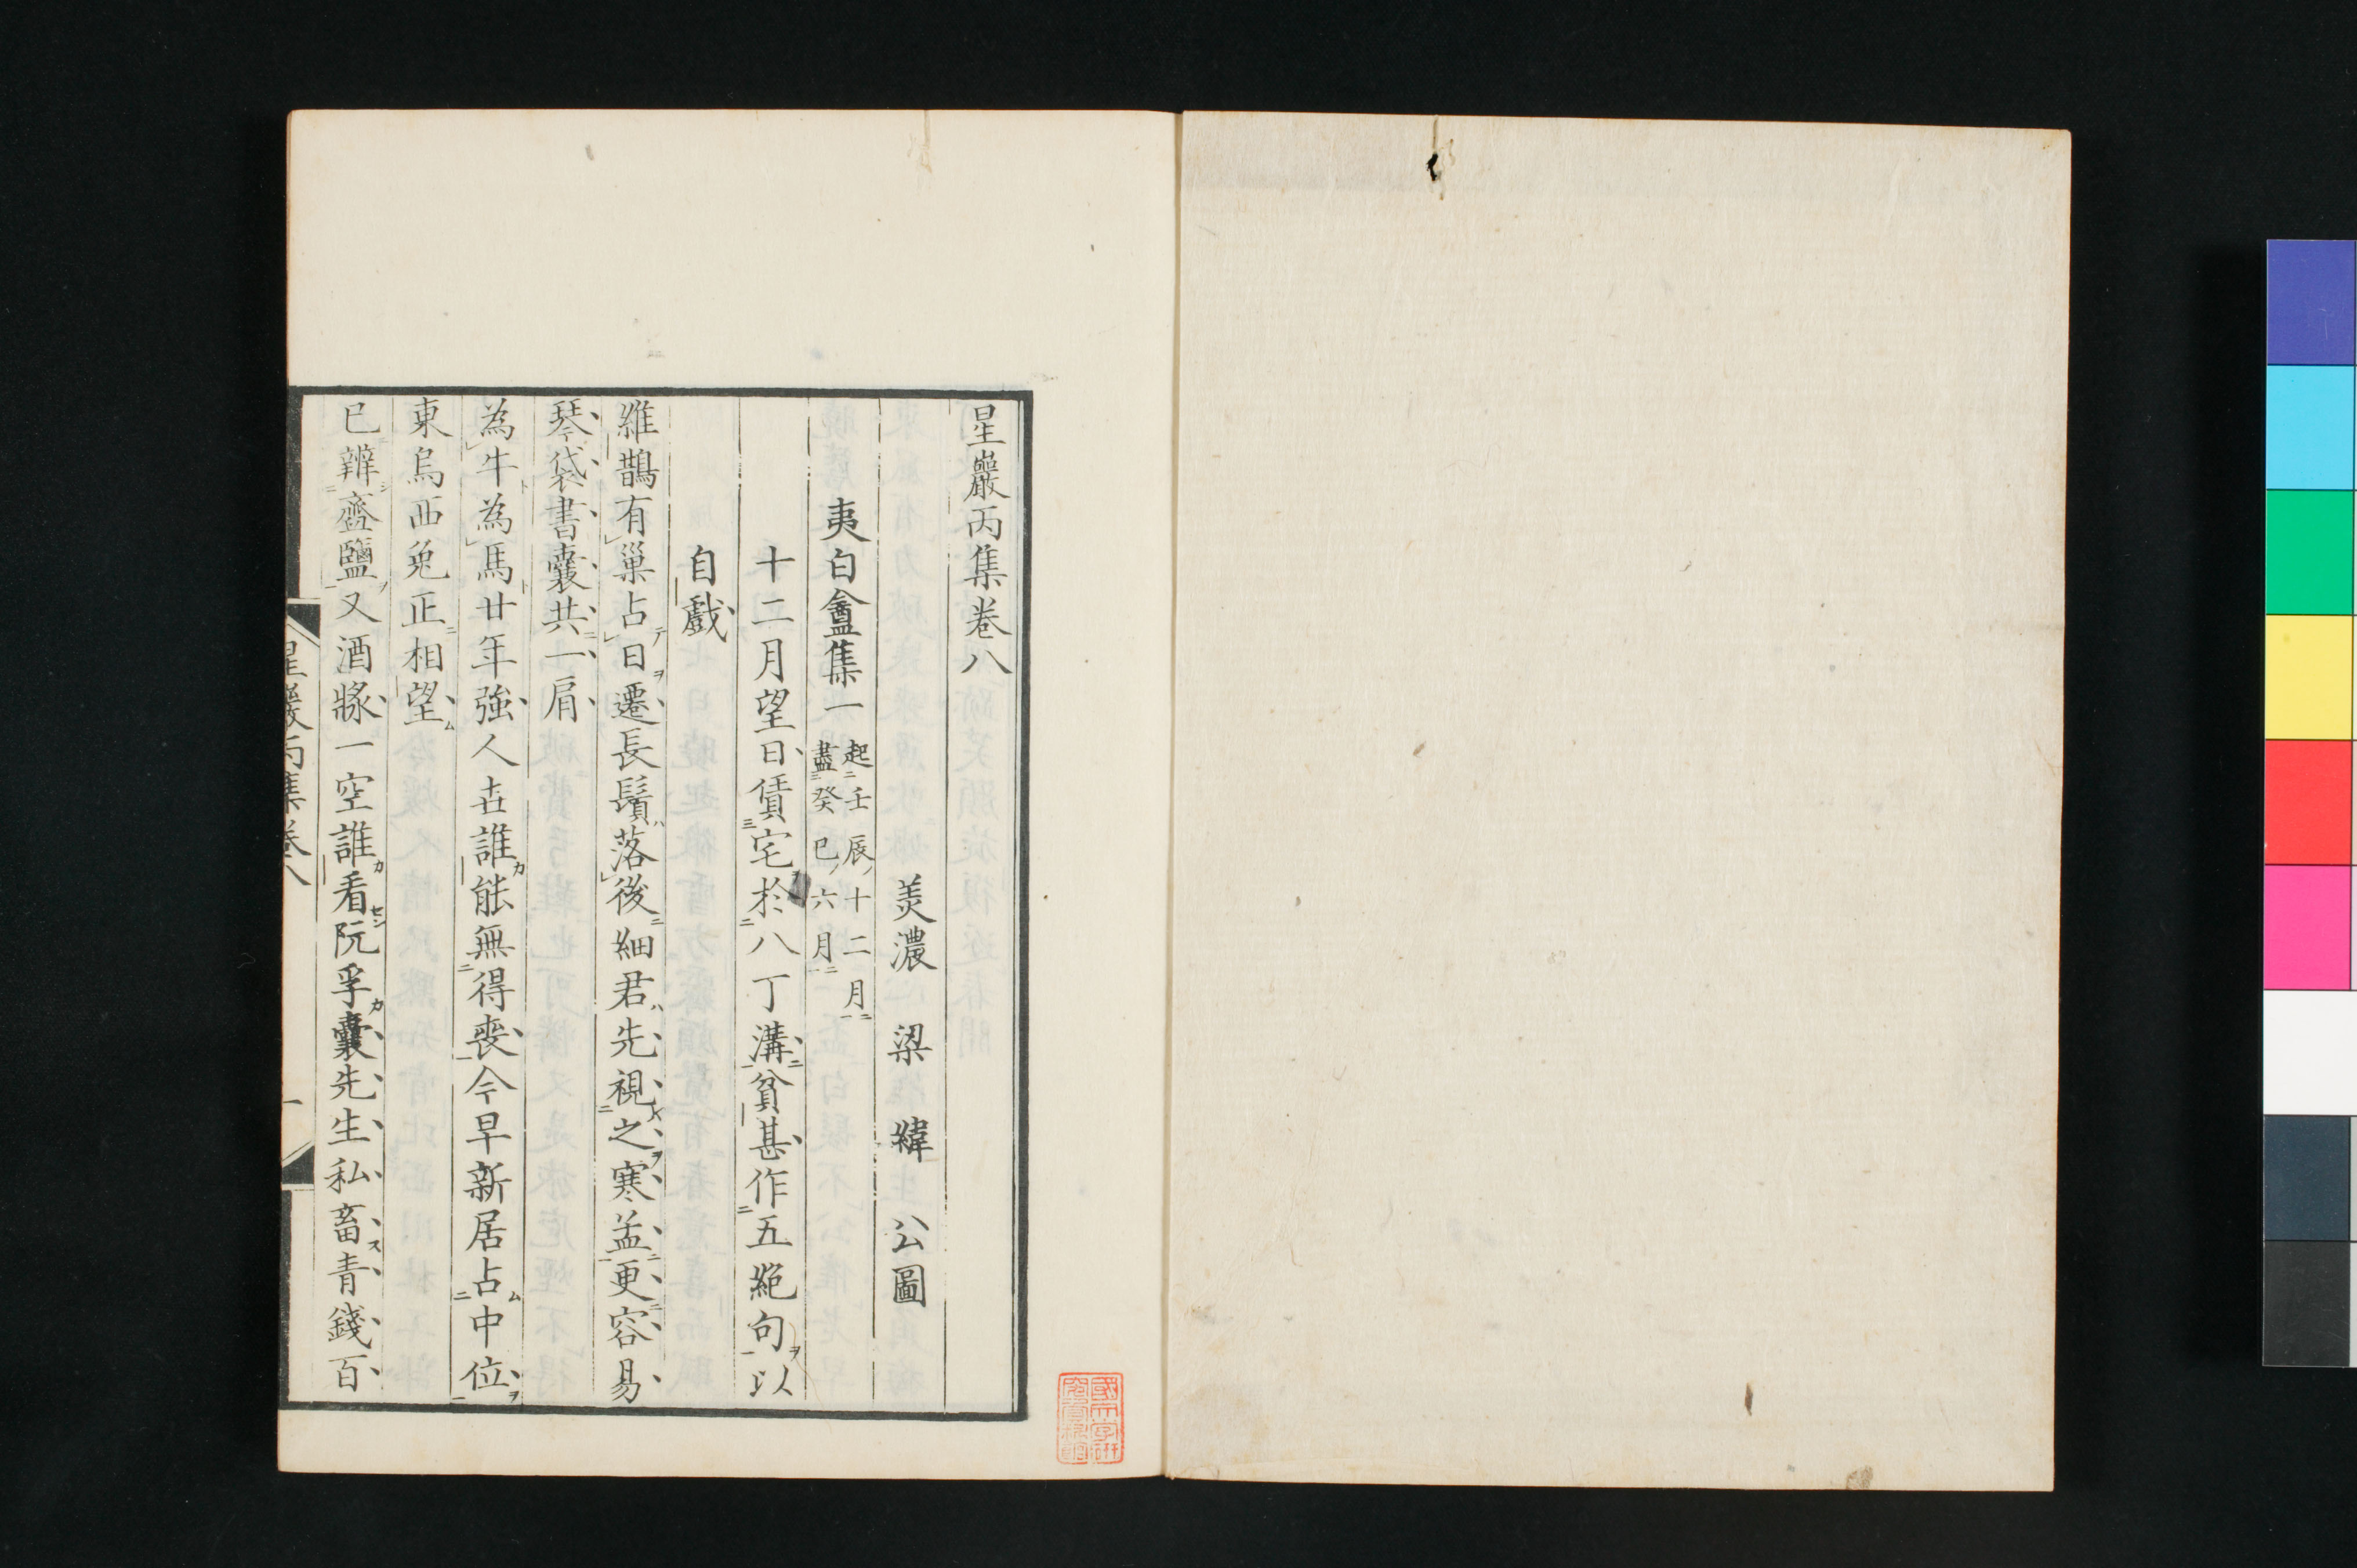 星巖丙集卷八
美濃 梁 緯 公圖
夷白盦集一 起壬辰十二月
盡癸巳六月
十二月望日賃宅於八丁溝貧甚作五絕句以
自戲
維鵲有巢占日遷長鬚落後細君先視之寒孟更容易
琴袋書囊共一肩
為牛為馬廿年強人去誰能無得喪今早新居占中位
東烏西兔正相望
已辨齏鹽又酒漿一空誰看阮孚囊先生私畜青錢百
星巖丙集卷八
一